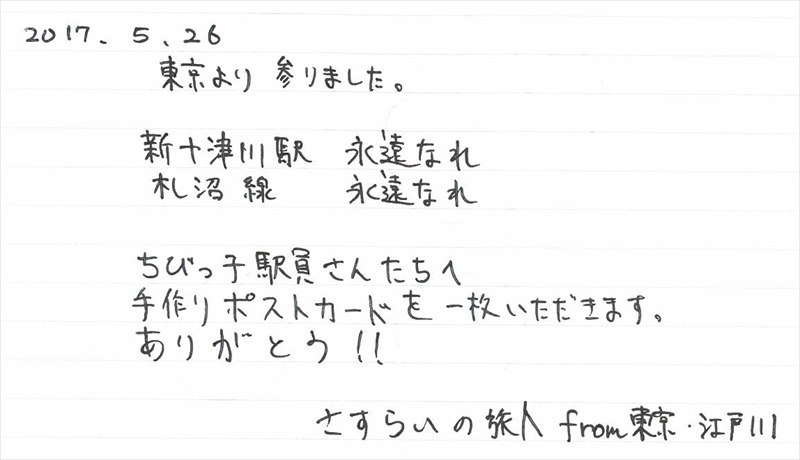 2017. 5. 26
東京より 参りました。
新十津川駅 永遠なれ
札沼線 永遠なれ
ちびっ子駅員さんたちへ
手作りポストカードを一枚いただきます。
ありがとう!!
さすらいの旅人 from東京・江戸川